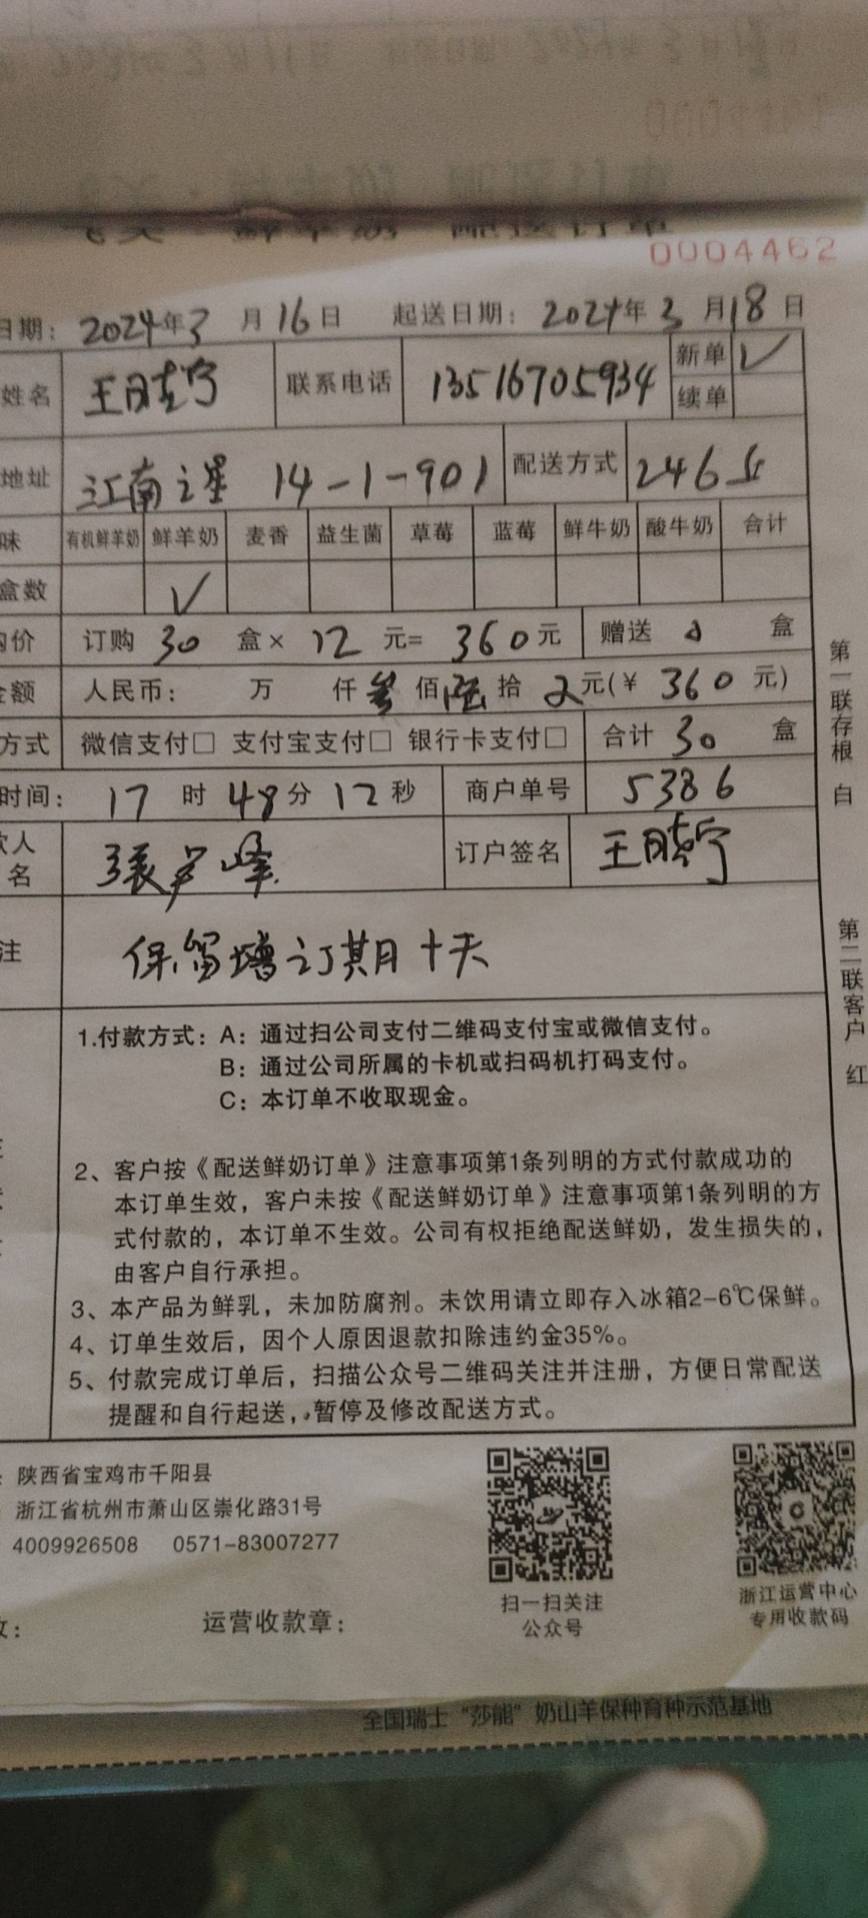 0004462
日期：2024年3月16日 起送日期：2024年3月18日
姓名 王晓宁 联系电话 13516705934 新单 √
续单
地址 江南之星 14-1-901 配送方式 246
味 有机鲜羊奶 鲜羊奶 麦香 益生菌 草莓 蓝莓 鲜牛奶 酸牛奶 合计
盒数 √
价 订购 30 盒× 12 元= 360 元 赠送 盒
金额 人民币： 万 仟 叁 佰 陆 拾 元(￥ 360 元)
方式 微信支付□ 支付宝支付□ 银行卡支付□ 合计 30 盒
时间： 17 时 48 分 12 秒 商户单号 5386
人
名 张 峰 订户签名 王晓宁
注 保留增订期十天
第一联存根 白
第二联客户 红
1.付款方式：A：通过扫公司支付二维码支付宝或微信支付。
B：通过公司所属的卡机或扫码机打码支付。
C：本订单不收取现金。
2、客户按《配送鲜奶订单》注意事项第1条列明的方式付款成功的
本订单生效，客户未按《配送鲜奶订单》注意事项第1条列明的方
式付款的，本订单不生效。公司有权拒绝配送鲜奶，发生损失的，
由客户自行承担。
3、本产品为鲜乳，未加防腐剂。未饮用请立即存入冰箱2-6℃保鲜。
4、订单生效后，因个人原因退款扣除违约金35%。
5、付款完成订单后，扫描公众号二维码关注并注册，方便日常配送
提醒和自行起送，暂停及修改配送方式。
陕西省宝鸡市千阳县
浙江省杭州市萧山区崇化路31号
4009926508 0571-83007277
扫一扫关注
公众号
浙江运营中心
专用收款码
运营收款章：
全国瑞士“莎能”奶山羊保种育种示范基地